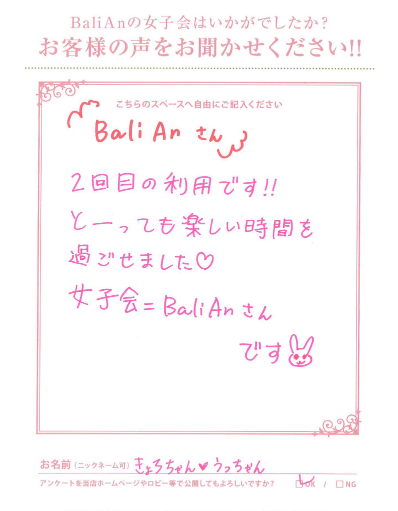 BaliAnの女子会はいかがでしたか？
お客様の声をお聞かせください!!
こちらのスペースへ自由にご記入ください
BaliAn さん
2回目の利用です!!
とーっても楽しい時間を
過ごせました♡
女子会=BaliAnさん
です
お名前（ニックネーム可） きょろちゃん♥うっちゃん
アンケートを当店ホームページやロビー等で公開してもよろしいですか？ □OK / □NG